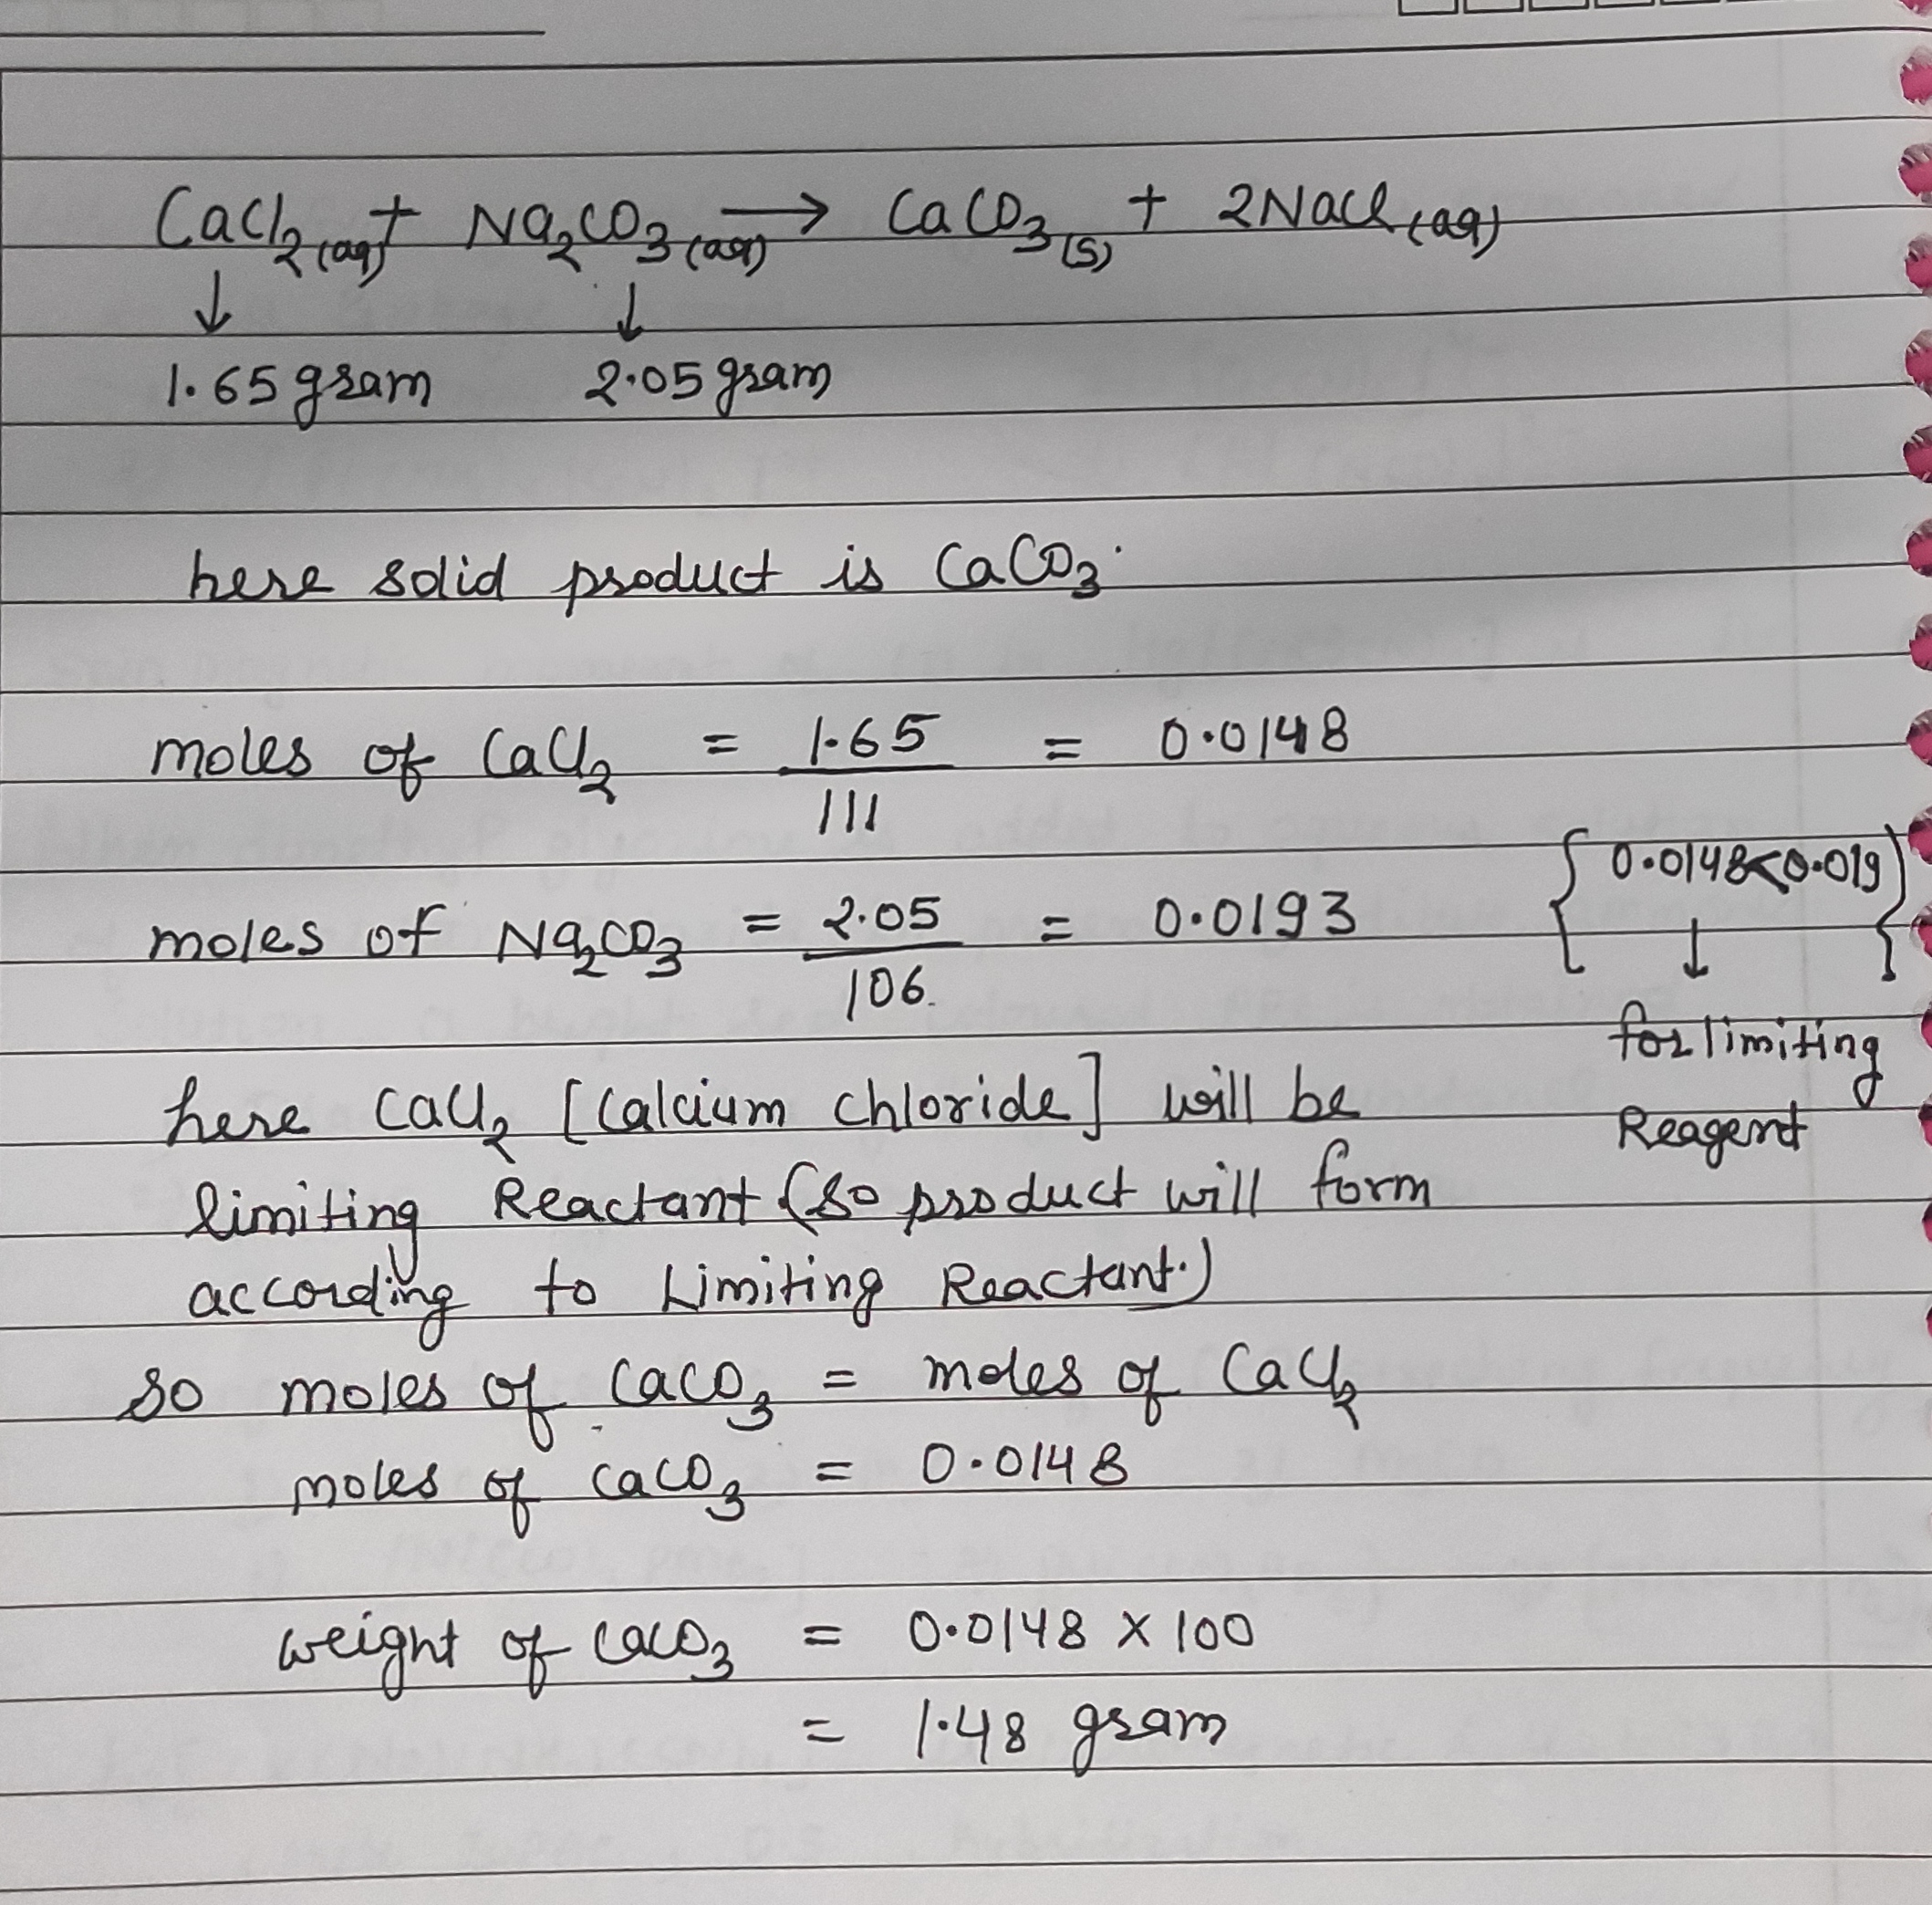 CaCl₂(aq) + Na₂CO₃(aq) → CaCO₃(s) + 2NaCl(aq)
↓ ↓
1.65 gram 2.05 gram
here solid product is CaCO₃.
moles of CaCl₂ = 1.65/111 = 0.0148
moles of Na₂CO₃ = 2.05/106. = 0.0193
{0.0148<0.019}
↓
for limiting
Reagent
here CaCl₂ [Calcium chloride] will be
limiting Reactant (so product will form
according to Limiting Reactant.)
so moles of CaCO₃ = moles of CaCl₂
moles of CaCO₃ = 0.0148
weight of CaCO₃ = 0.0148 × 100
= 1.48 gram